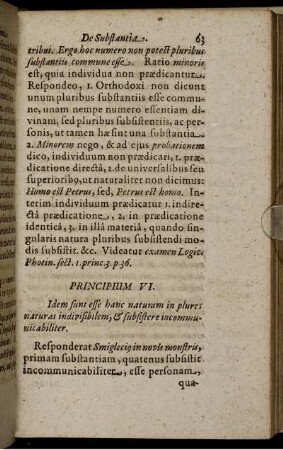 De Substantia. 63
tribui. Ergo hoc numero non potest pluribus
substantiis commune esse. Ratio minoris
est, quia individua non prædicantur.
Respondeo, 1. Orthodoxi non dicunt
unum pluribus substantiis esse commu-
ne, unam nempe numero essentiam di-
vinam, sed pluribus subsistentiis, ac per-
sonis, ut tamen hæ sint una substantia.
2. Minorem nego, & ad ejus probationem
dico, individuum non prædicari, 1. præ-
dicatione directâ, 2. de universalibus seu
superioribꝰ, ut naturaliter non dicimus:
Homo est Petrus, sed, Petrus est homo. In-
terim individuum prædicatur 1. indire-
ctâ prædicatione, 2. in prædicatione
identicâ, 3. in illâ materiâ, quando sin-
gularis natura pluribus subsistendi mo-
dis subsistit. &c. Videatur examen Logic.
Photin. sect. 1. princ. 3. p. 36.
PRINCIPIUM VI.
Idem sunt esse hanc naturam in plures
naturas indivisibilem, & subsistere incommu-
nicabiliter.
Responderat Smiglecio in novis monstris,
primam substantiam, quatenus subsistit
incommunicabiliter, esse personam,
qua-